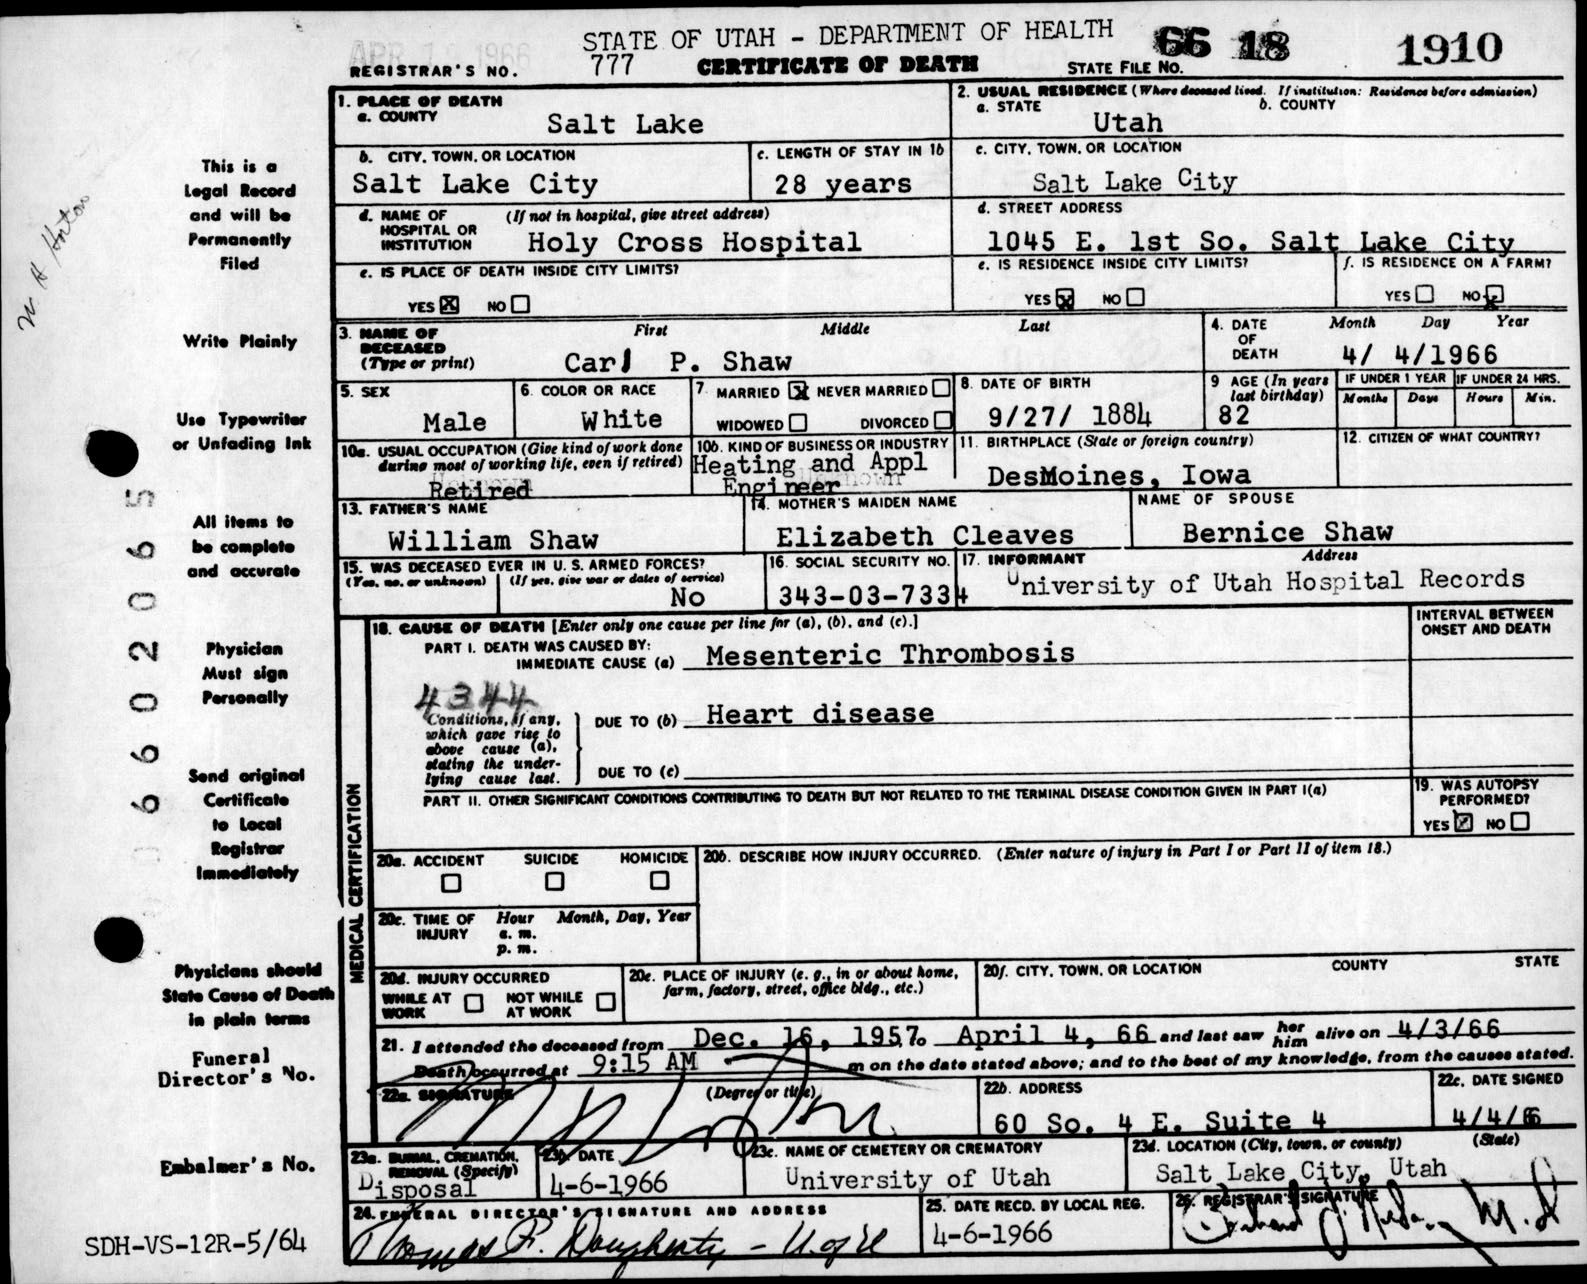 APR 12 1966
STATE OF UTAH - DEPARTMENT OF HEALTH 66 18 1910
REGISTRAR'S NO. 777 CERTIFICATE OF DEATH STATE FILE NO.
1. PLACE OF DEATH
a. COUNTY
Salt Lake
2. USUAL RESIDENCE (Where deceased lived. If institution: Residence before admission)
a. STATE b. COUNTY
Utah
b. CITY, TOWN, OR LOCATION
Salt Lake City
c. LENGTH OF STAY IN 1b
28 years
c. CITY, TOWN, OR LOCATION
Salt Lake City
d. NAME OF HOSPITAL OR INSTITUTION (If not in hospital, give street address)
Holy Cross Hospital
d. STREET ADDRESS
1045 E. 1st So. Salt Lake City
e. IS PLACE OF DEATH INSIDE CITY LIMITS?
YES X NO
e. IS RESIDENCE INSIDE CITY LIMITS?
YES X NO
f. IS RESIDENCE ON A FARM?
YES NO X
3. NAME OF DECEASED (Type or print)
First Middle Last
Carl P. Shaw
4. DATE OF DEATH
Month Day Year
4/ 4/1966
5. SEX
Male
6. COLOR OR RACE
White
7. MARRIED X NEVER MARRIED
WIDOWED DIVORCED
8. DATE OF BIRTH
9/27/ 1884
9 AGE (In years last birthday)
82
IF UNDER 1 YEAR
Months Days
IF UNDER 24 HRS.
Hours Min.
10a. USUAL OCCUPATION (Give kind of work done during most of working life, even if retired)
Retired
10b. KIND OF BUSINESS OR INDUSTRY
Heating and Appl
Engineer
11. BIRTHPLACE (State or foreign country)
DesMoines, Iowa
12. CITIZEN OF WHAT COUNTRY?
13. FATHER'S NAME
William Shaw
14. MOTHER'S MAIDEN NAME
Elizabeth Cleaves
NAME OF SPOUSE
Bernice Shaw
15. WAS DECEASED EVER IN U. S. ARMED FORCES?
(Yes, no, or unknown) (If yes, give war or dates of service)
No
16. SOCIAL SECURITY NO.
343-03-7334
17. INFORMANT Address
University of Utah Hospital Records
MEDICAL CERTIFICATION
18. CAUSE OF DEATH [Enter only one cause per line for (a), (b), and (c).]
INTERVAL BETWEEN ONSET AND DEATH
PART I. DEATH WAS CAUSED BY:
IMMEDIATE CAUSE (a) Mesenteric Thrombosis
4344
Conditions, if any, which gave rise to above cause (a), stating the underlying cause last.
DUE TO (b) Heart disease
DUE TO (c)
PART II. OTHER SIGNIFICANT CONDITIONS CONTRIBUTING TO DEATH BUT NOT RELATED TO THE TERMINAL DISEASE CONDITION GIVEN IN PART I(a)
19. WAS AUTOPSY PERFORMED?
YES X NO
20a. ACCIDENT SUICIDE HOMICIDE
20b. DESCRIBE HOW INJURY OCCURRED. (Enter nature of injury in Part I or Part II of item 18.)
20c. TIME OF INJURY Hour Month, Day, Year
a. m.
p. m.
20d. INJURY OCCURRED
WHILE AT WORK NOT WHILE AT WORK
20e. PLACE OF INJURY (e. g., in or about home, farm, factory, street, office bldg., etc.)
20f. CITY, TOWN, OR LOCATION COUNTY STATE
21. I attended the deceased from Dec. 16, 1957 to April 4, 66 and last saw her him alive on 4/3/66
Death occurred at 9:15 AM m on the date stated above; and to the best of my knowledge, from the causes stated.
22a. SIGNATURE (Degree or title)
22b. ADDRESS
60 So. 4 E. Suite 4
22c. DATE SIGNED
4/4/66
23a. BURIAL, CREMATION, REMOVAL (Specify)
Disposal
23b DATE
4-6-1966
23c. NAME OF CEMETERY OR CREMATORY
University of Utah
23d. LOCATION (City, town, or county) (State)
Salt Lake City, Utah
24. FUNERAL DIRECTOR'S SIGNATURE AND ADDRESS
Thomas R. Dougherty - U of U
25. DATE RECD. BY LOCAL REG.
4-6-1966
26. REGISTRAR'S SIGNATURE
M.D
This is a
Legal Record
and will be
Permanently
Filed
Write Plainly
Use Typewriter
or Unfading Ink
All items to
be complete
and accurate
Physician
Must sign
Personally
Send original
Certificate
to Local
Registrar
Immediately
Physicians should
State Cause of Death
in plain terms
Funeral
Director's No.
Embalmer's No.
SDH-VS-12R-5/64
W. H. Horton
0 6 6 0 2 0 6 5